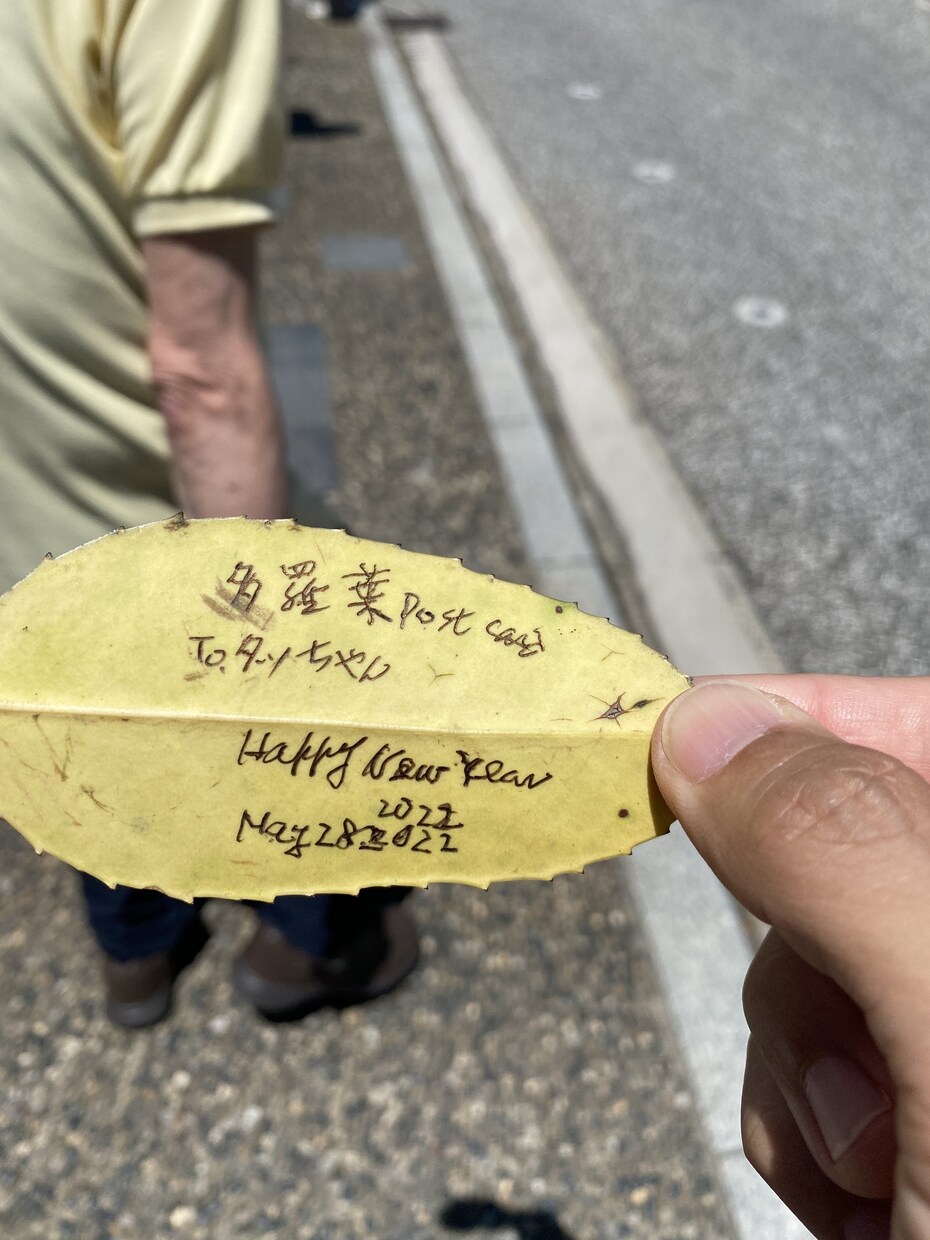 多羅葉 Post card
To. タッちゃん
Happy New Year
2022
May 28 2022